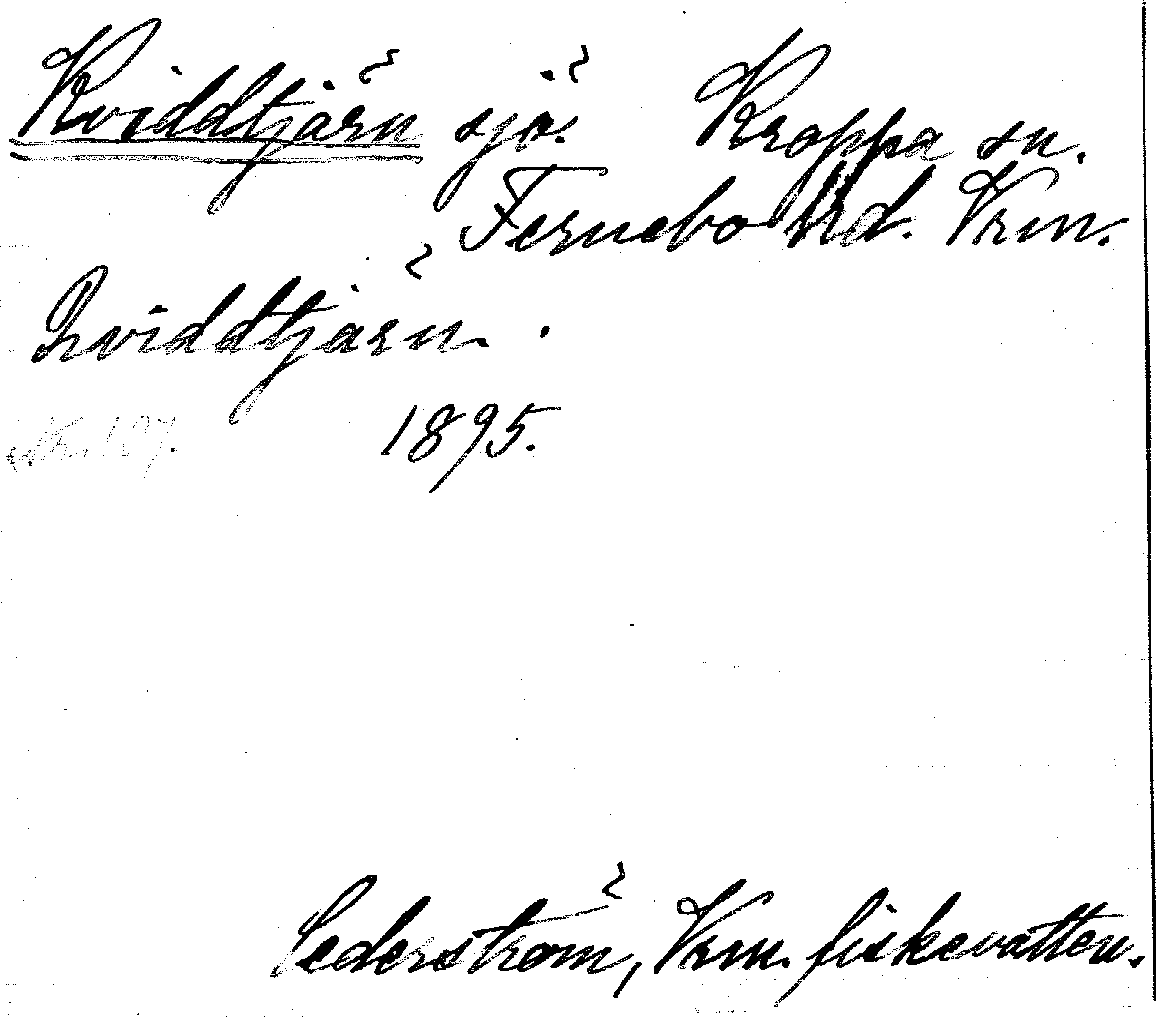 Kviddtjärn sjö. Kroppa sn.
Fernebo hrd. Vrm.
Qviddtjärn.
1895.
Cederström, Vrm. fiskevatten.